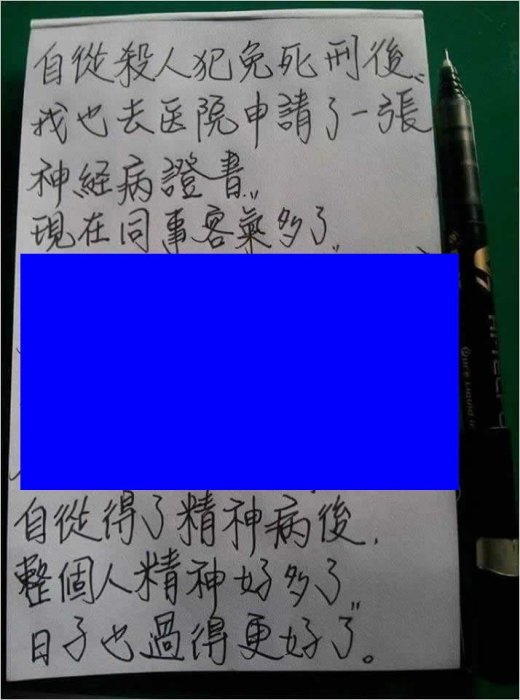 自從殺人犯免死刑後,,
我也去医院申請了一張
神経病證書,,
現在同事客氣多了,,
自從得了精神病後,
整個人精神好多了,,
日子也過得更好了。